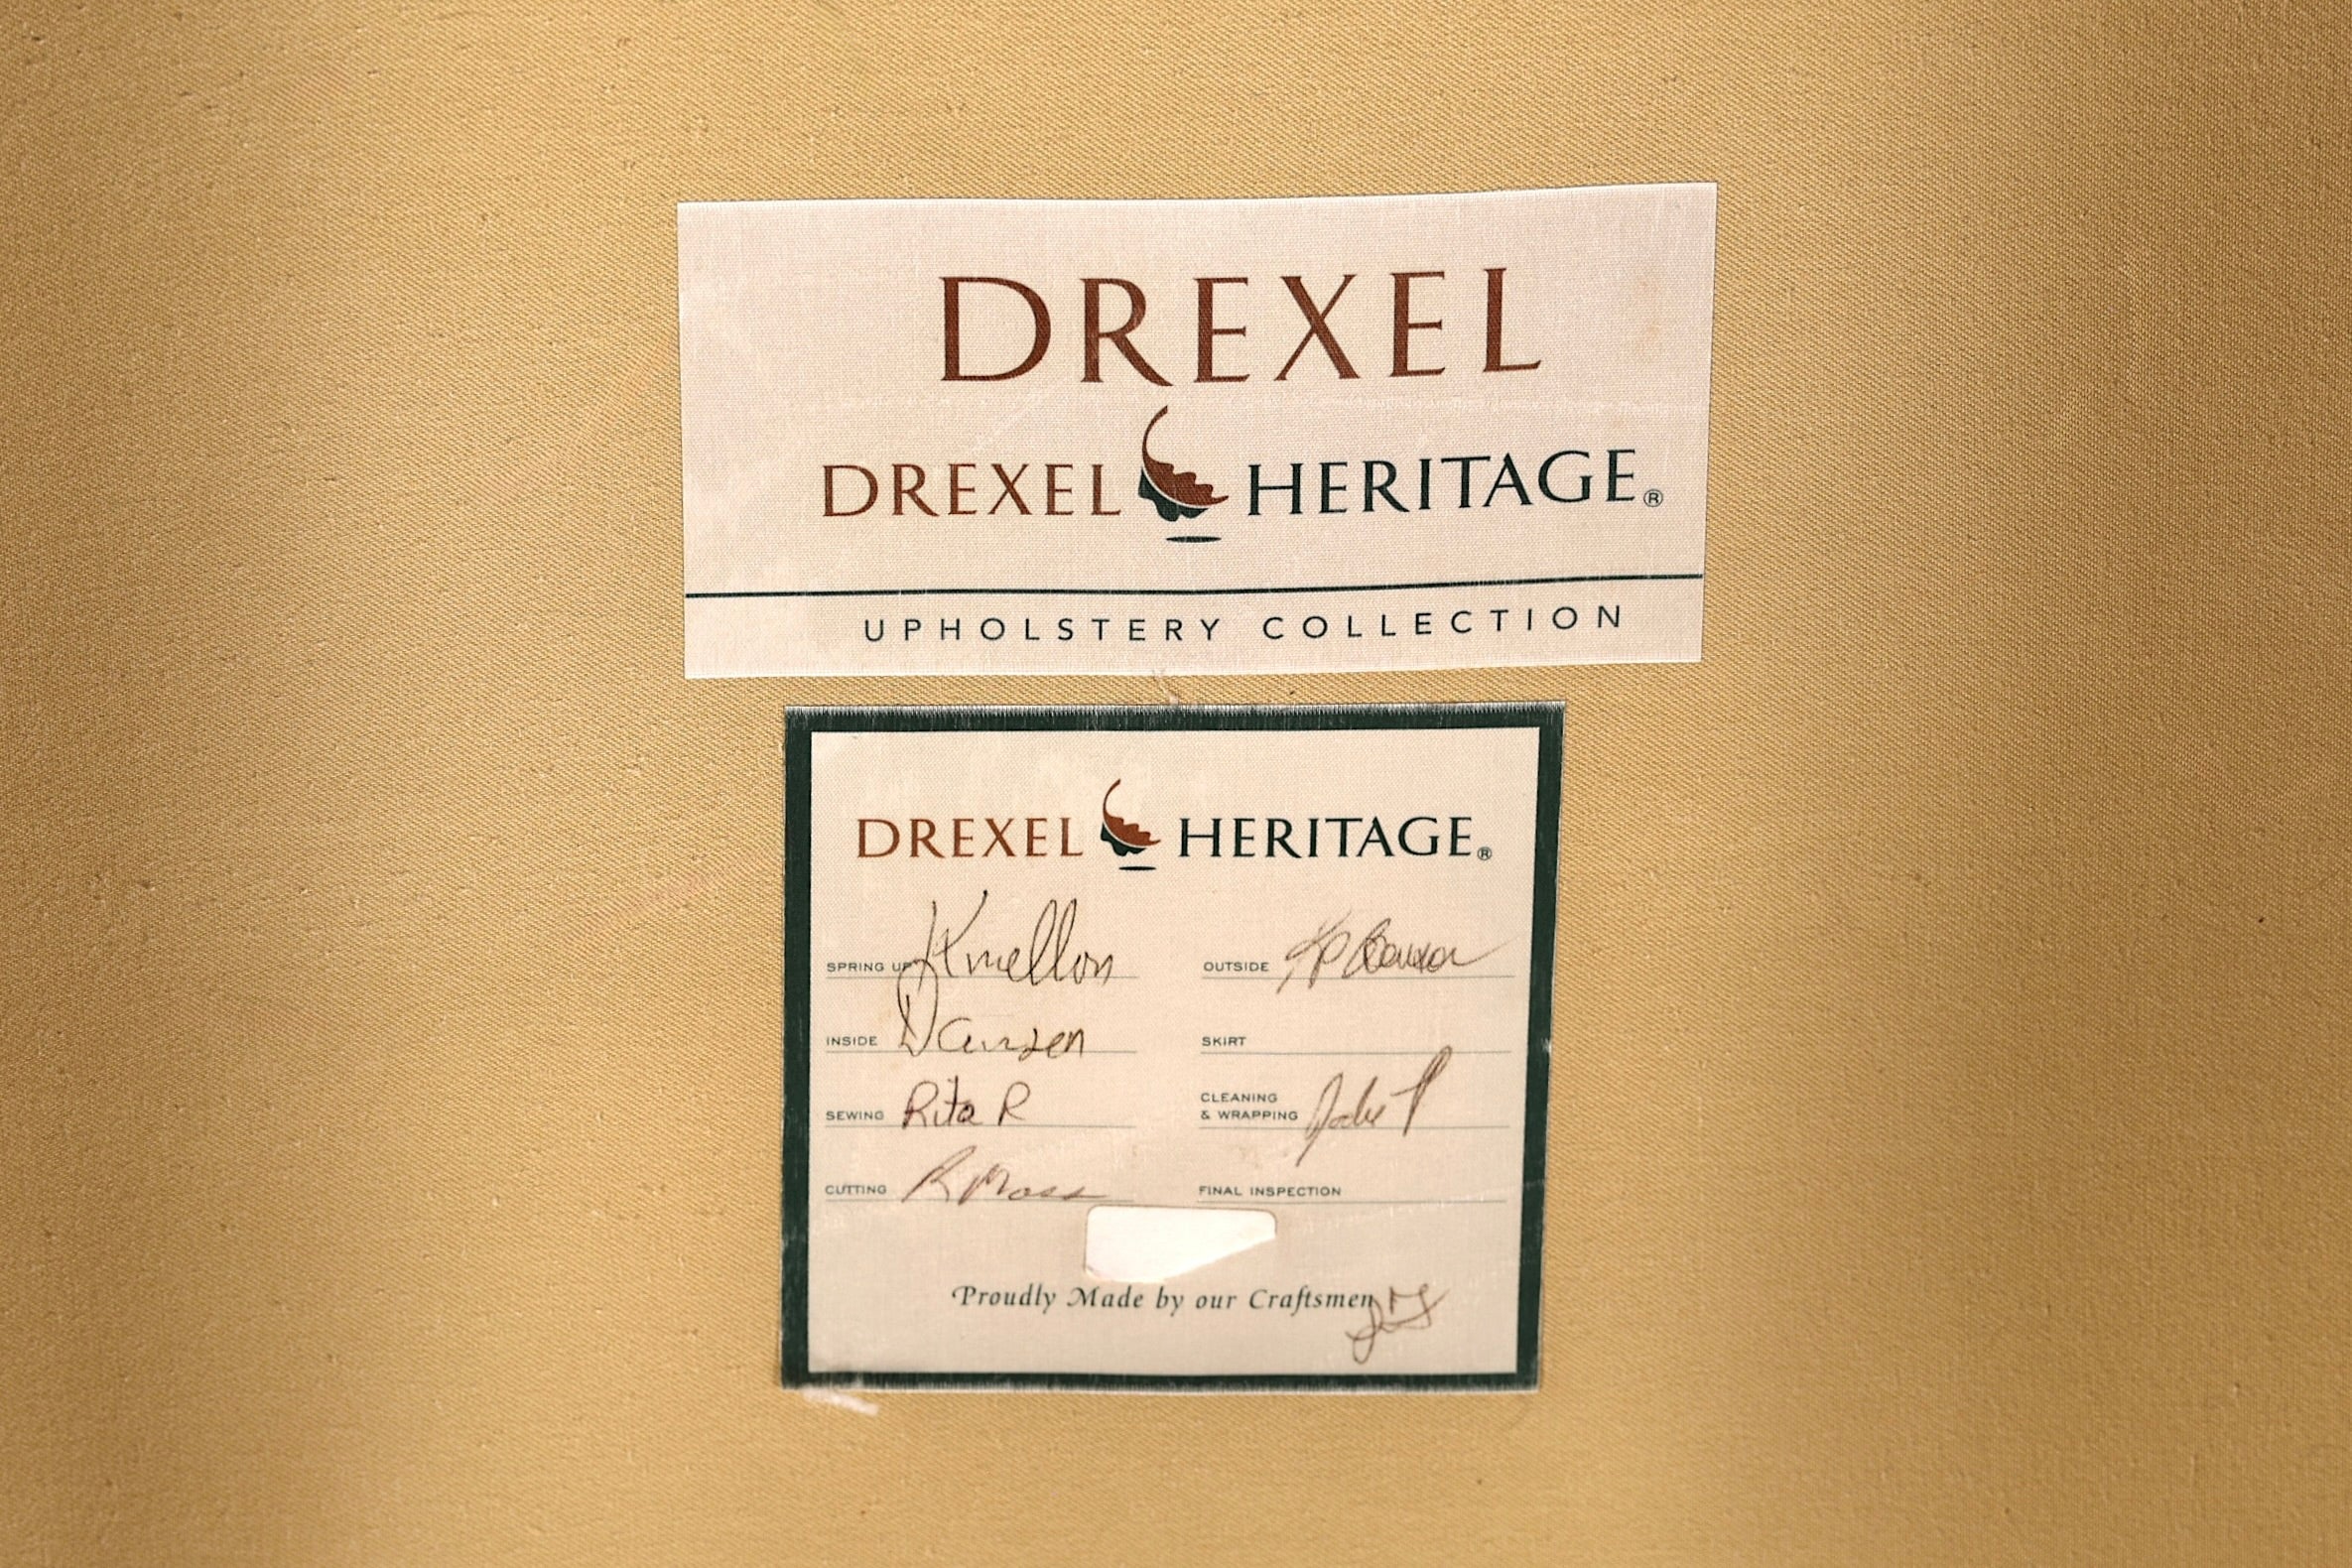 DREXEL
DREXEL HERITAGE®
UPHOLSTERY COLLECTION
DREXEL HERITAGE®
SPRING UP K mellon
OUTSIDE
INSIDE
SKIRT
SEWING Rita R
CLEANING
& WRAPPING
CUTTING R Moss
FINAL INSPECTION
Proudly Made by our Craftsmen